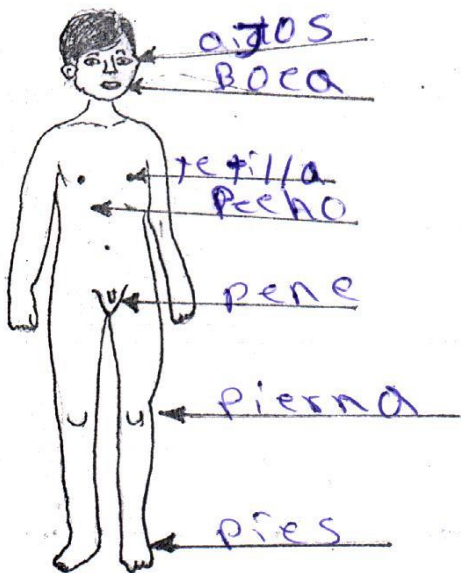 oijos
Boca
tetilla
Pecho
pene
pierna
pies